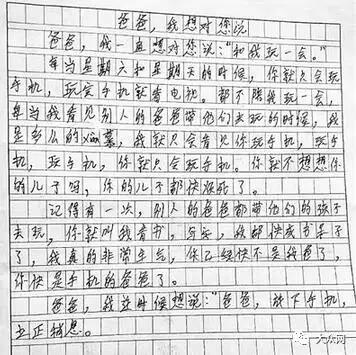 爸爸，我想对您说
爸爸，我一直想对您说："和我玩一会。"
每当星期六和星期天的时候，你就只会玩
手机，玩完手机就看电视。都不陪我玩一会，
每当我看见别人的爸爸带他们去玩的时候，我
是多么的xian慕，我就只会看见你玩手机，玩手
机，玩手机，你就只会玩手机。你就不想想你
的儿子吗，你的儿子都快疯死了。
记得有一次，别人的爸爸都带他们的孩子
去玩，你就叫我看书，写字，我都快成书呆子
了，我真的非常生气，你已经快不是我爸了，
你快是手机的爸爸了。
爸爸，我这时候想说："爸爸，放下手机，
大众网